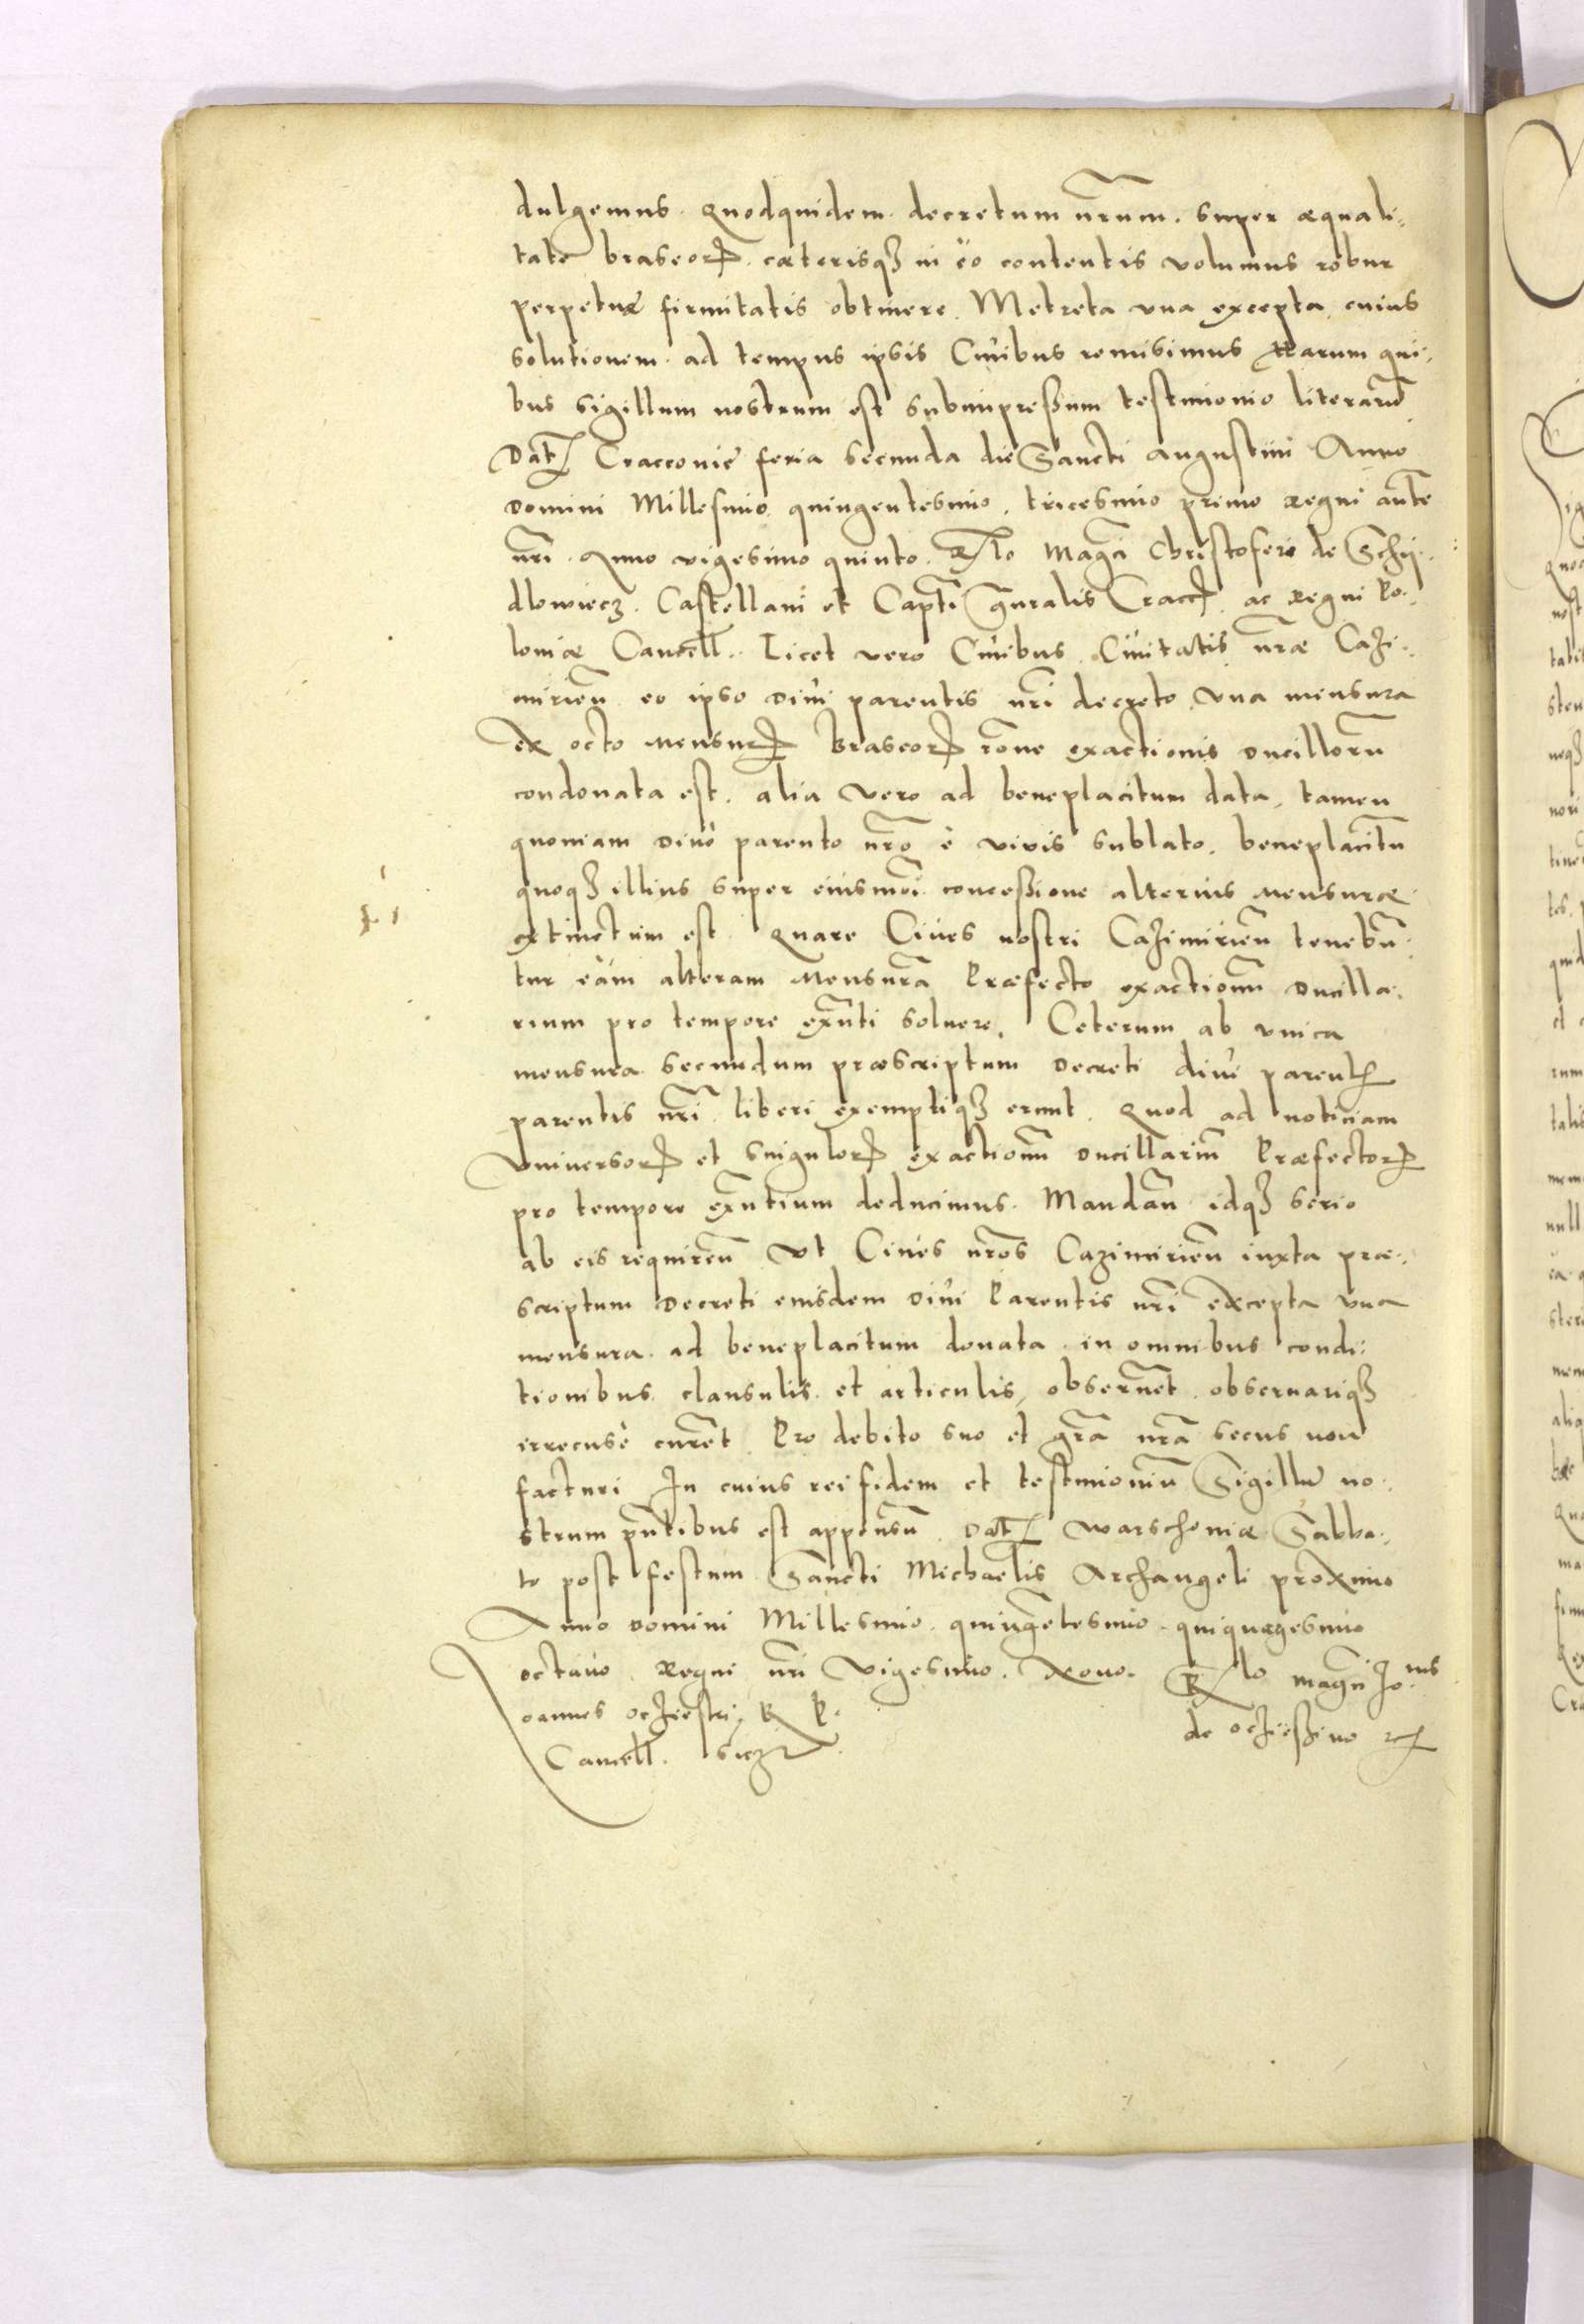 dulgemus. Quodquidem decretum nr̃um. super æquali-
tate braseoꝝ. cæterisqꝫ in eo contentis volumus robur
perpetuæ firmitatis obtinere. Metreta vna excepta, cuius
solutionem ad tempus ipsis Ciuibus remisimus Harum qui-
bus sigillum nostrum est subimpressum testimonio literarũ
Dat. Cracoviæ feria secunda die Sancti Augustini Anno
Domini Millesimo quingentesimo. tricesimo primo Regni aut̃e
nr̃i. Anno vigesimo quinto. R̃lo Mag̃ci Christoferi de Schij-
dlowiecz. Castellani et Capt̃i G̃nralis Cracc̃. ac Regni Po-
loniæ Cancell̃. Licet vero Ciuibus Ciuitatis nr̃æ Cazi-
mirieñ eo ipso Diui parentis nr̃i decreto, vna mensura
ex octo mensurꝝ braseoꝝ rõne exactionis ducillorũ
condonata est. alia vero ad beneplacitum data, tamen
quoniam Diuo parente nr̃o è vivis sublato. beneplacitũ
quoqꝫ illius super eiusmõi concessione alterius mensuræ
extinctum est. Quare Ciues nostri Cazimirieñ tenebũ-
tur eam alteram mensurã Præfecto exactionũ Ducilla-
rium pro tempore ex̃nti soluere. Ceterum ab vnica
mensura secundum præscriptum Decreti diui parent.
parentis nr̃i liberi exemptiqꝫ erunt. Quod ad notitiam
Vniversoꝝ et singuloꝝ exactionũ ducillariũ Præfectoꝝ
pro tempore ex̃ntium deducimus. Mandañ idqꝫ serio
ab eis requireñ Vt Ciues nr̃os Cazimirieñ iuxta præ-
scriptum Decreti eiusdem Diui Parentis nr̃i excepta vna
mensura ad beneplacitum donata in omnibus condi-
tionibus clausulis et articulis, obseruẽt obseruariqꝫ
irrecusè curẽt Pro debito suo et gr̃a nr̃a secus non
facturi In cuius rei fidem et testimoniũ Sigillũ no-
strum p̃ntibus est appensũ Dat. Warschoniæ Sabba-
to post festum Sancti Michaelis Archangeli proximo
Anno Domini Millesimo quingẽtesimo quiquagesimo
octauo Regni nr̃i Vigesimo. Nono. R̃lo magñ Joannis
Joannes Oczieski R P de Ocziessino etc.
Cancell̃. sszt